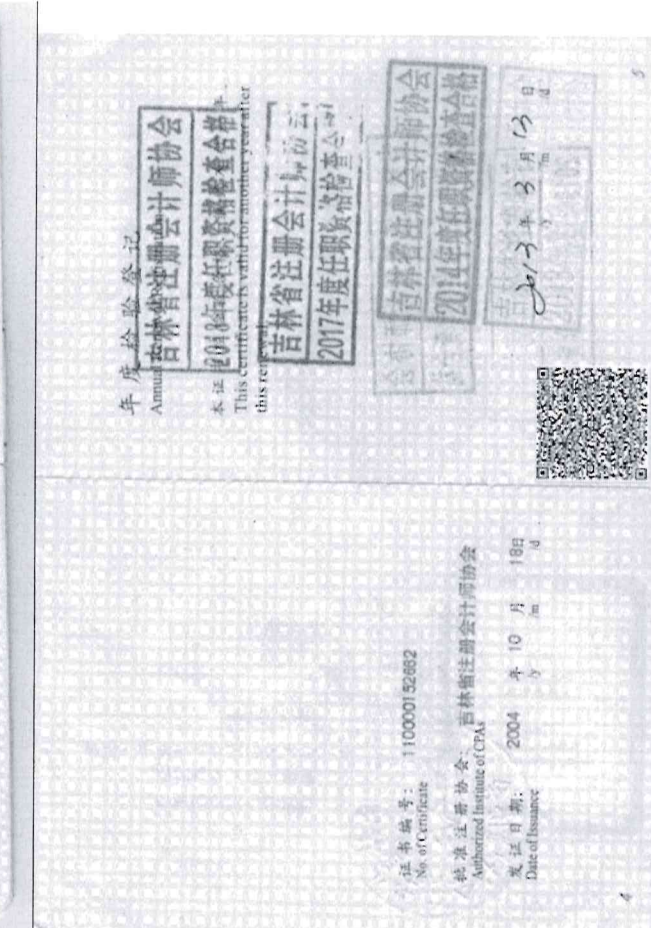 证书编号: 110000152682
No. of Certificate
批准注册协会: 吉林省注册会计师协会
Authorized Institute of CPAs
发证日期: 2004 年 10 月 18日
Date of Issuance /y /m /d
4
年度检验登记
Annual Renewal Registration
吉林省注册会计师协会
2018年度任职资格检查合格
本证
This certificate is valid for another year after
this renewal
吉林省注册会计师协会
2017年度任职资格检查合
吉林省注册会计师协会
2014年度任职资格检查合格
2013 年 3 月 13 日
/y /m /d
5